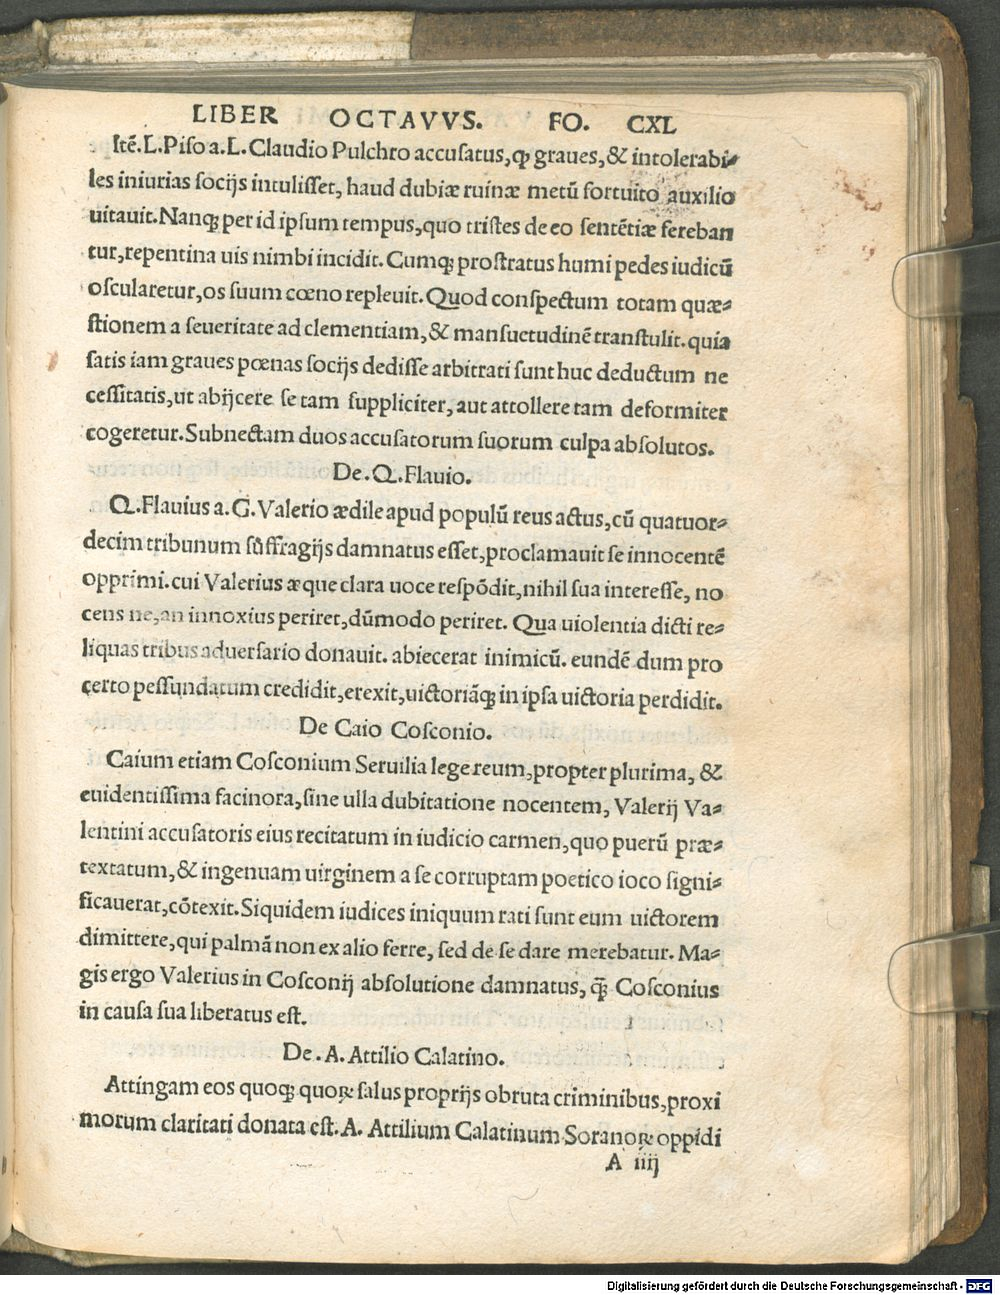 LIBER OCTAVVS. FO. CXL
Itē. L. Piſo a. L. Claudio Pulchro accuſatus, ꝙ graues, & intolerabi-
les iniurias ſocijs intuliſſet, haud dubiæ ruinæ metū fortuito auxilio
uitauit. Nanꝗ per id ipſum tempus, quo triſtes de eo ſentētiæ fereban
tur, repentina uis nimbi incidit. Cumꝗ proſtratus humi pedes iudicū
oſcularetur, os ſuum cœno repleuit. Quod conſpectum totam quæ-
ſtionem a ſeueritate ad clementiam, & manſuetudinē tranſtulit. quia
ſatis iam graues pœnas ſocijs dediſſe arbitrati ſunt huc deductum ne
ceſſitatis, ut abijcere ſe tam ſuppliciter, aut attollere tam deformiter
cogeretur. Subnectam duos accuſatorum ſuorum culpa abſolutos.
De. Q. Flauio.
Q. Flauius a. G. Valerio ædile apud populū reus actus, cū quatuor-
decim tribunum ſuffragijs damnatus eſſet, proclamauit ſe innocentē
opprimi. cui Valerius æque clara uoce reſpōdit, nihil ſua intereſſe, no
cens ne, an innoxius periret, dūmodo periret. Qua uiolentia dicti re-
liquas tribus aduerſario donauit. abiecerat inimicū. eundē dum pro
certo peſſundatum credidit, erexit, uictoriāꝗ in ipſa uictoria perdidit.
De Caio Coſconio.
Caium etiam Coſconium Seruilia lege reum, propter plurima, &
euidentiſſima facinora, ſine ulla dubitatione nocentem, Valerij Va-
lentini accuſatoris eius recitatum in iudicio carmen, quo puerū præ-
textatum, & ingenuam uirginem a ſe corruptam poetico ioco ſigni-
ficauerat, cōtexit. Siquidem iudices iniquum rati ſunt eum uictorem
dimittere, qui palmā non ex alio ferre, ſed de ſe dare merebatur. Ma-
gis ergo Valerius in Coſconij abſolutione damnatus, ꝗ̄ Coſconius
in cauſa ſua liberatus eſt.
De. A. Attilio Calatino.
Attingam eos quoꝗ quoꝝ ſalus proprijs obruta criminibus, proxi
morum claritati donata eſt. A. Attilium Calatinum Soranoꝝ oppidi
A iiij
Digitalisierung gefördert durch die Deutsche Forschungsgemeinschaft - DFG